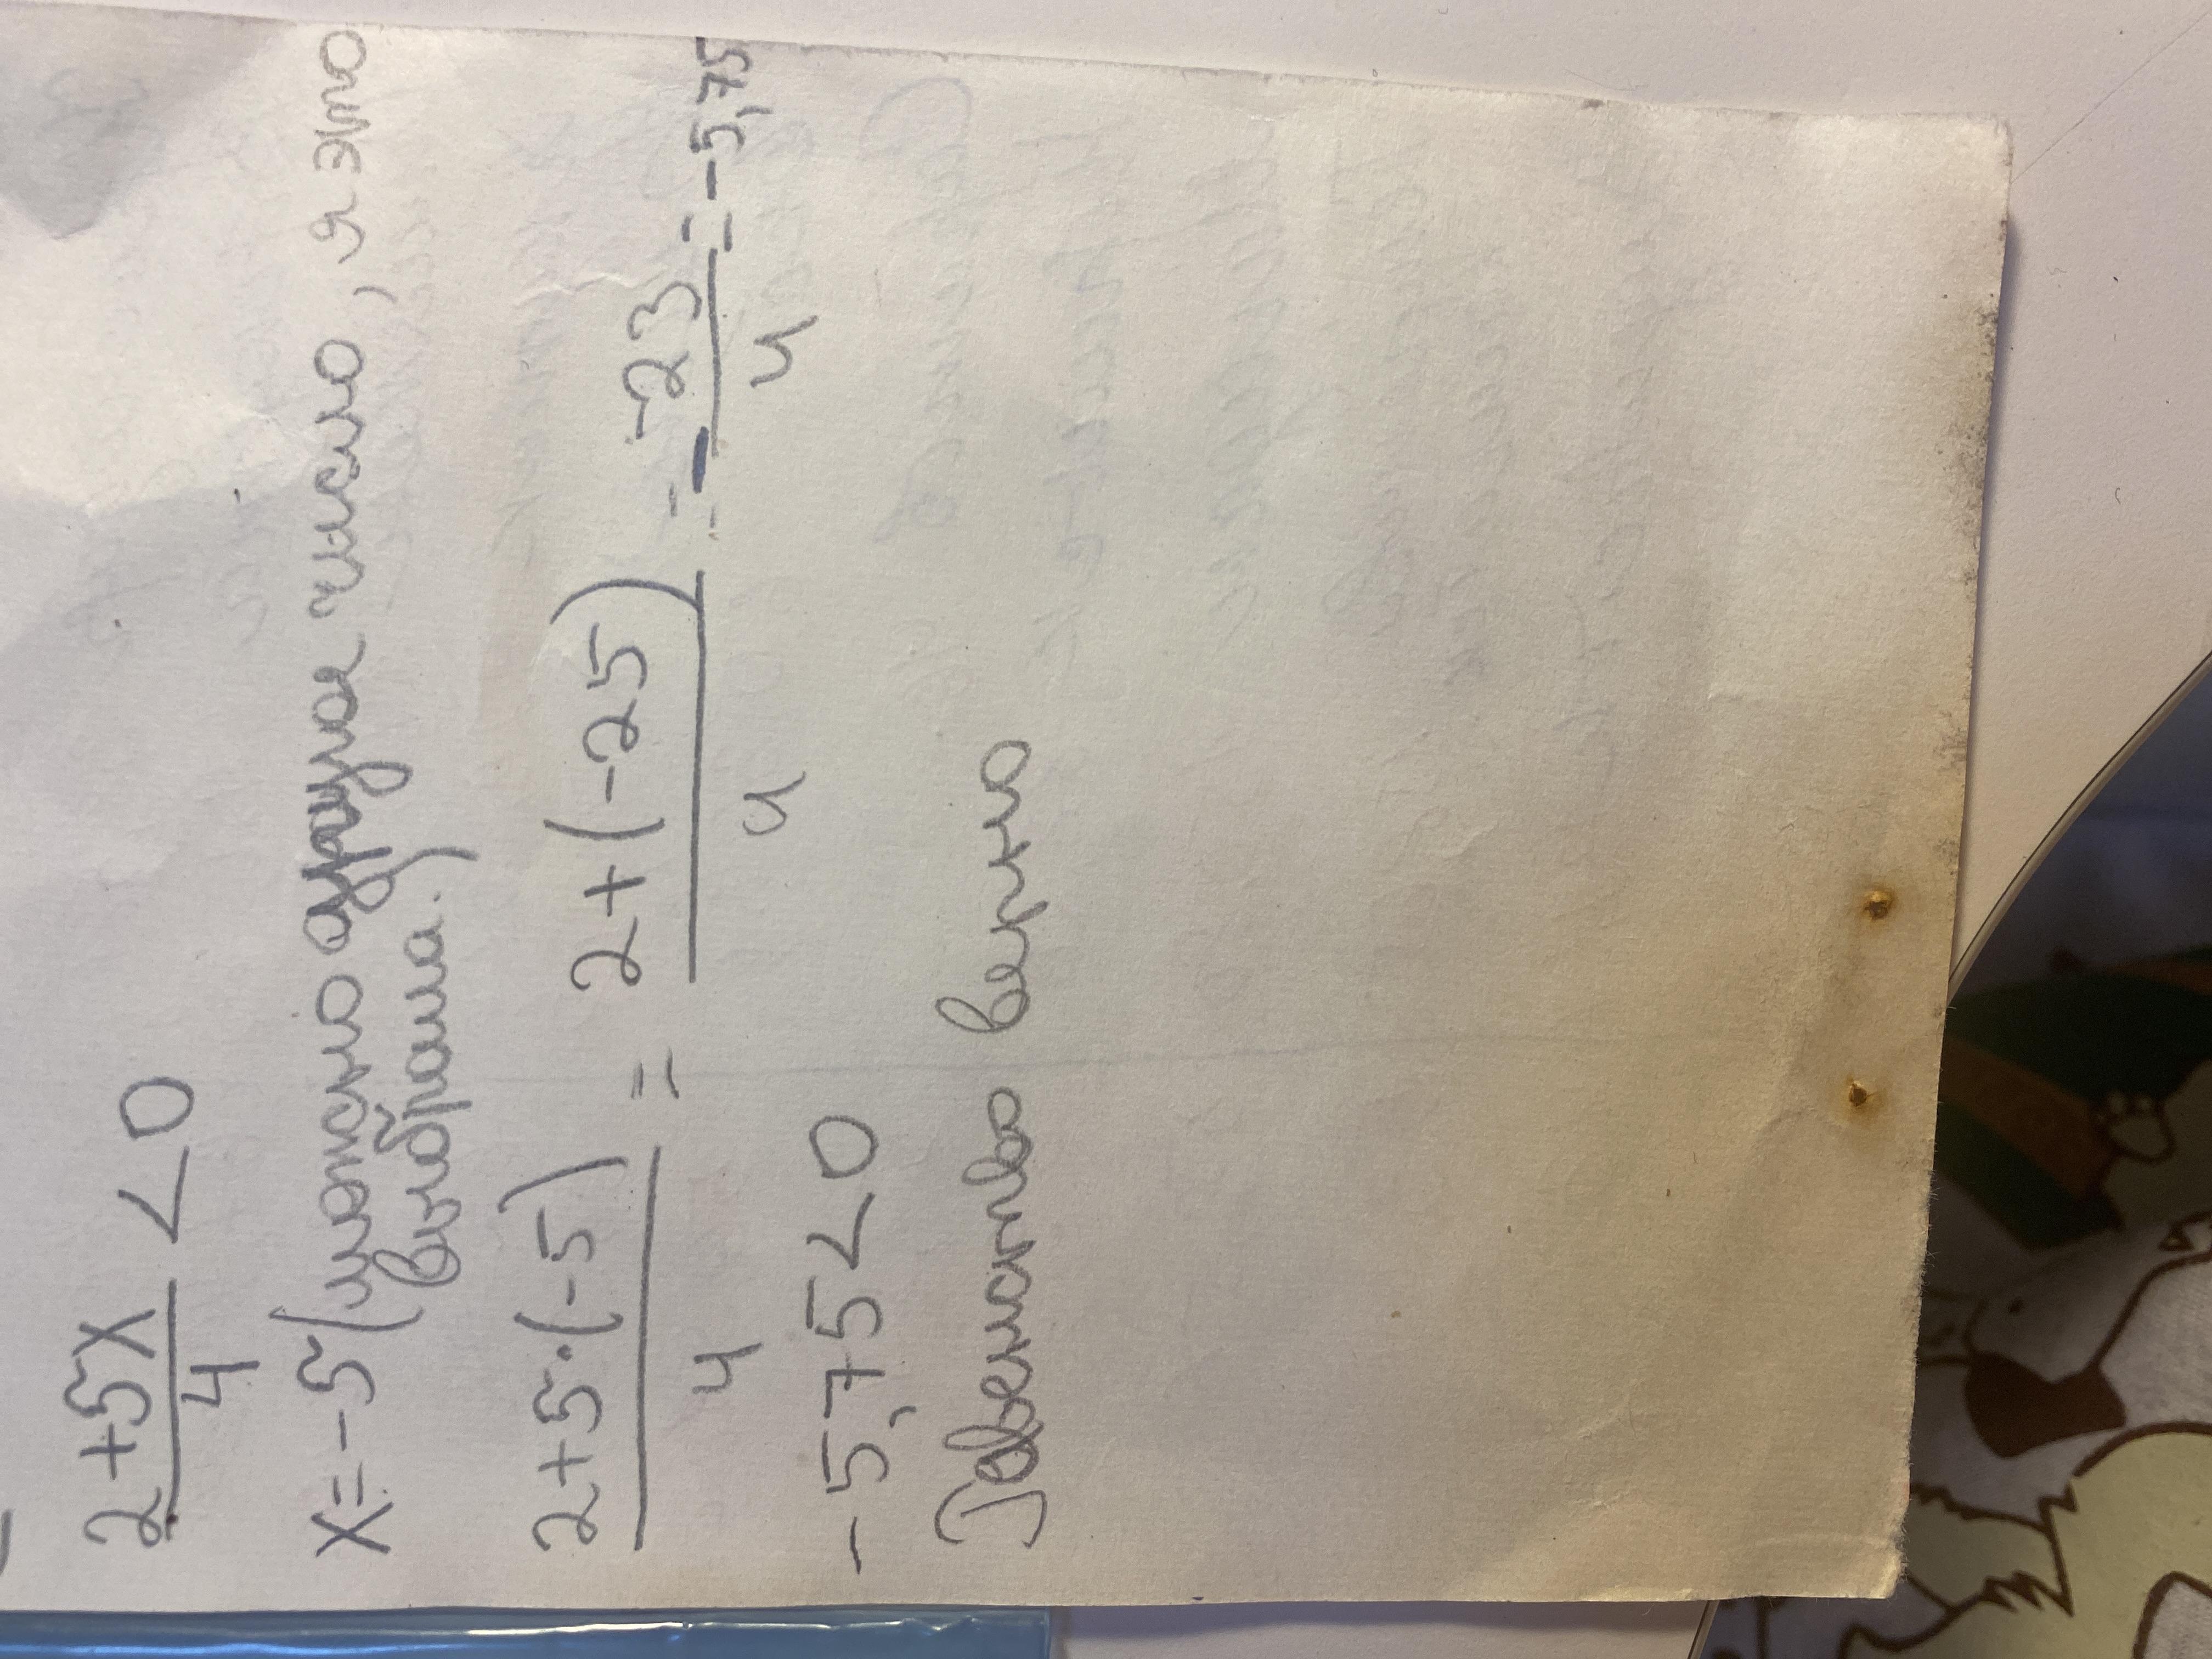 2+5x/4 <0
x=-5 (можно другое число, я это
выбрала.)
2+5·(-5)/4 = 2+(-25)/4 = -23/4 = -5,75
-5,75<0
верно